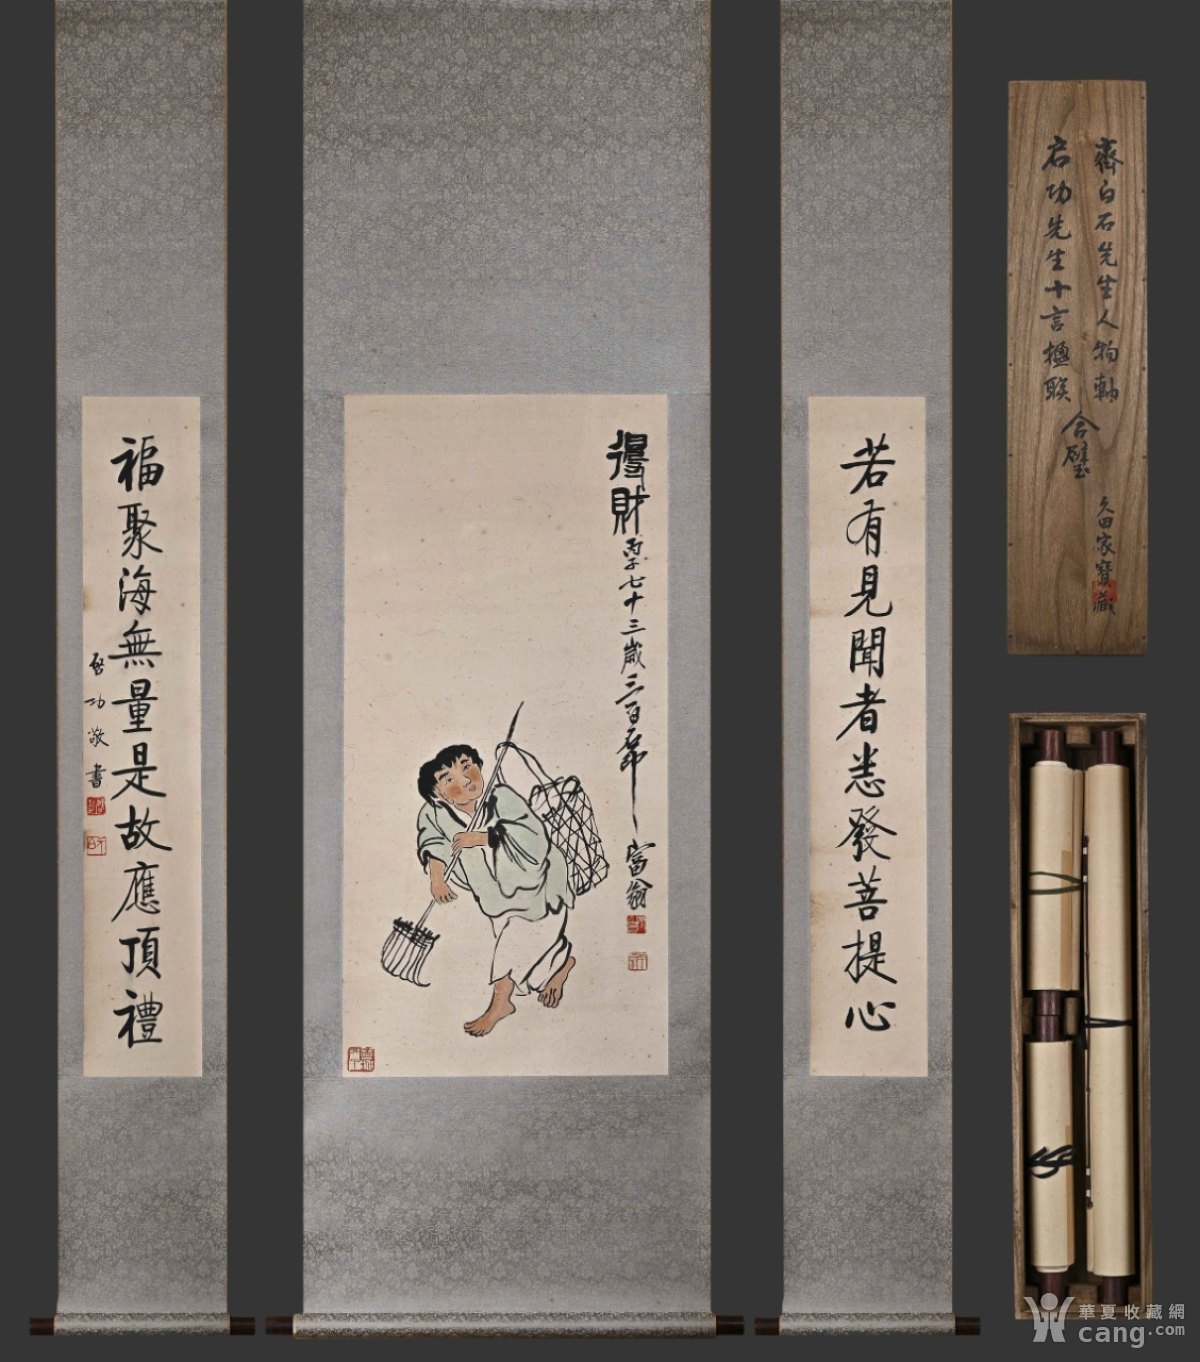 若有見聞者悉發菩提心
得財
丙子七十三歲三百石印
富翁
福聚海無量是故應頂禮
啓功敬書
齊白石先生人物軸
启功先生十言楹联
合璧
久田家寶藏
華夏收藏網
cang.com